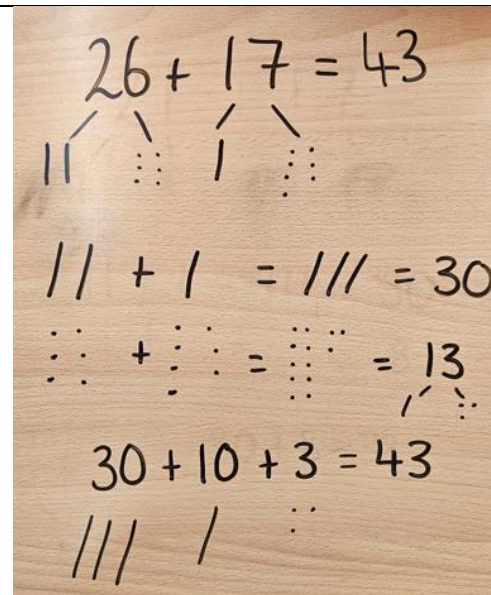 26 + 17 = 43
// + / = /// = 30
+ = = 13
30 + 10 + 3 = 43